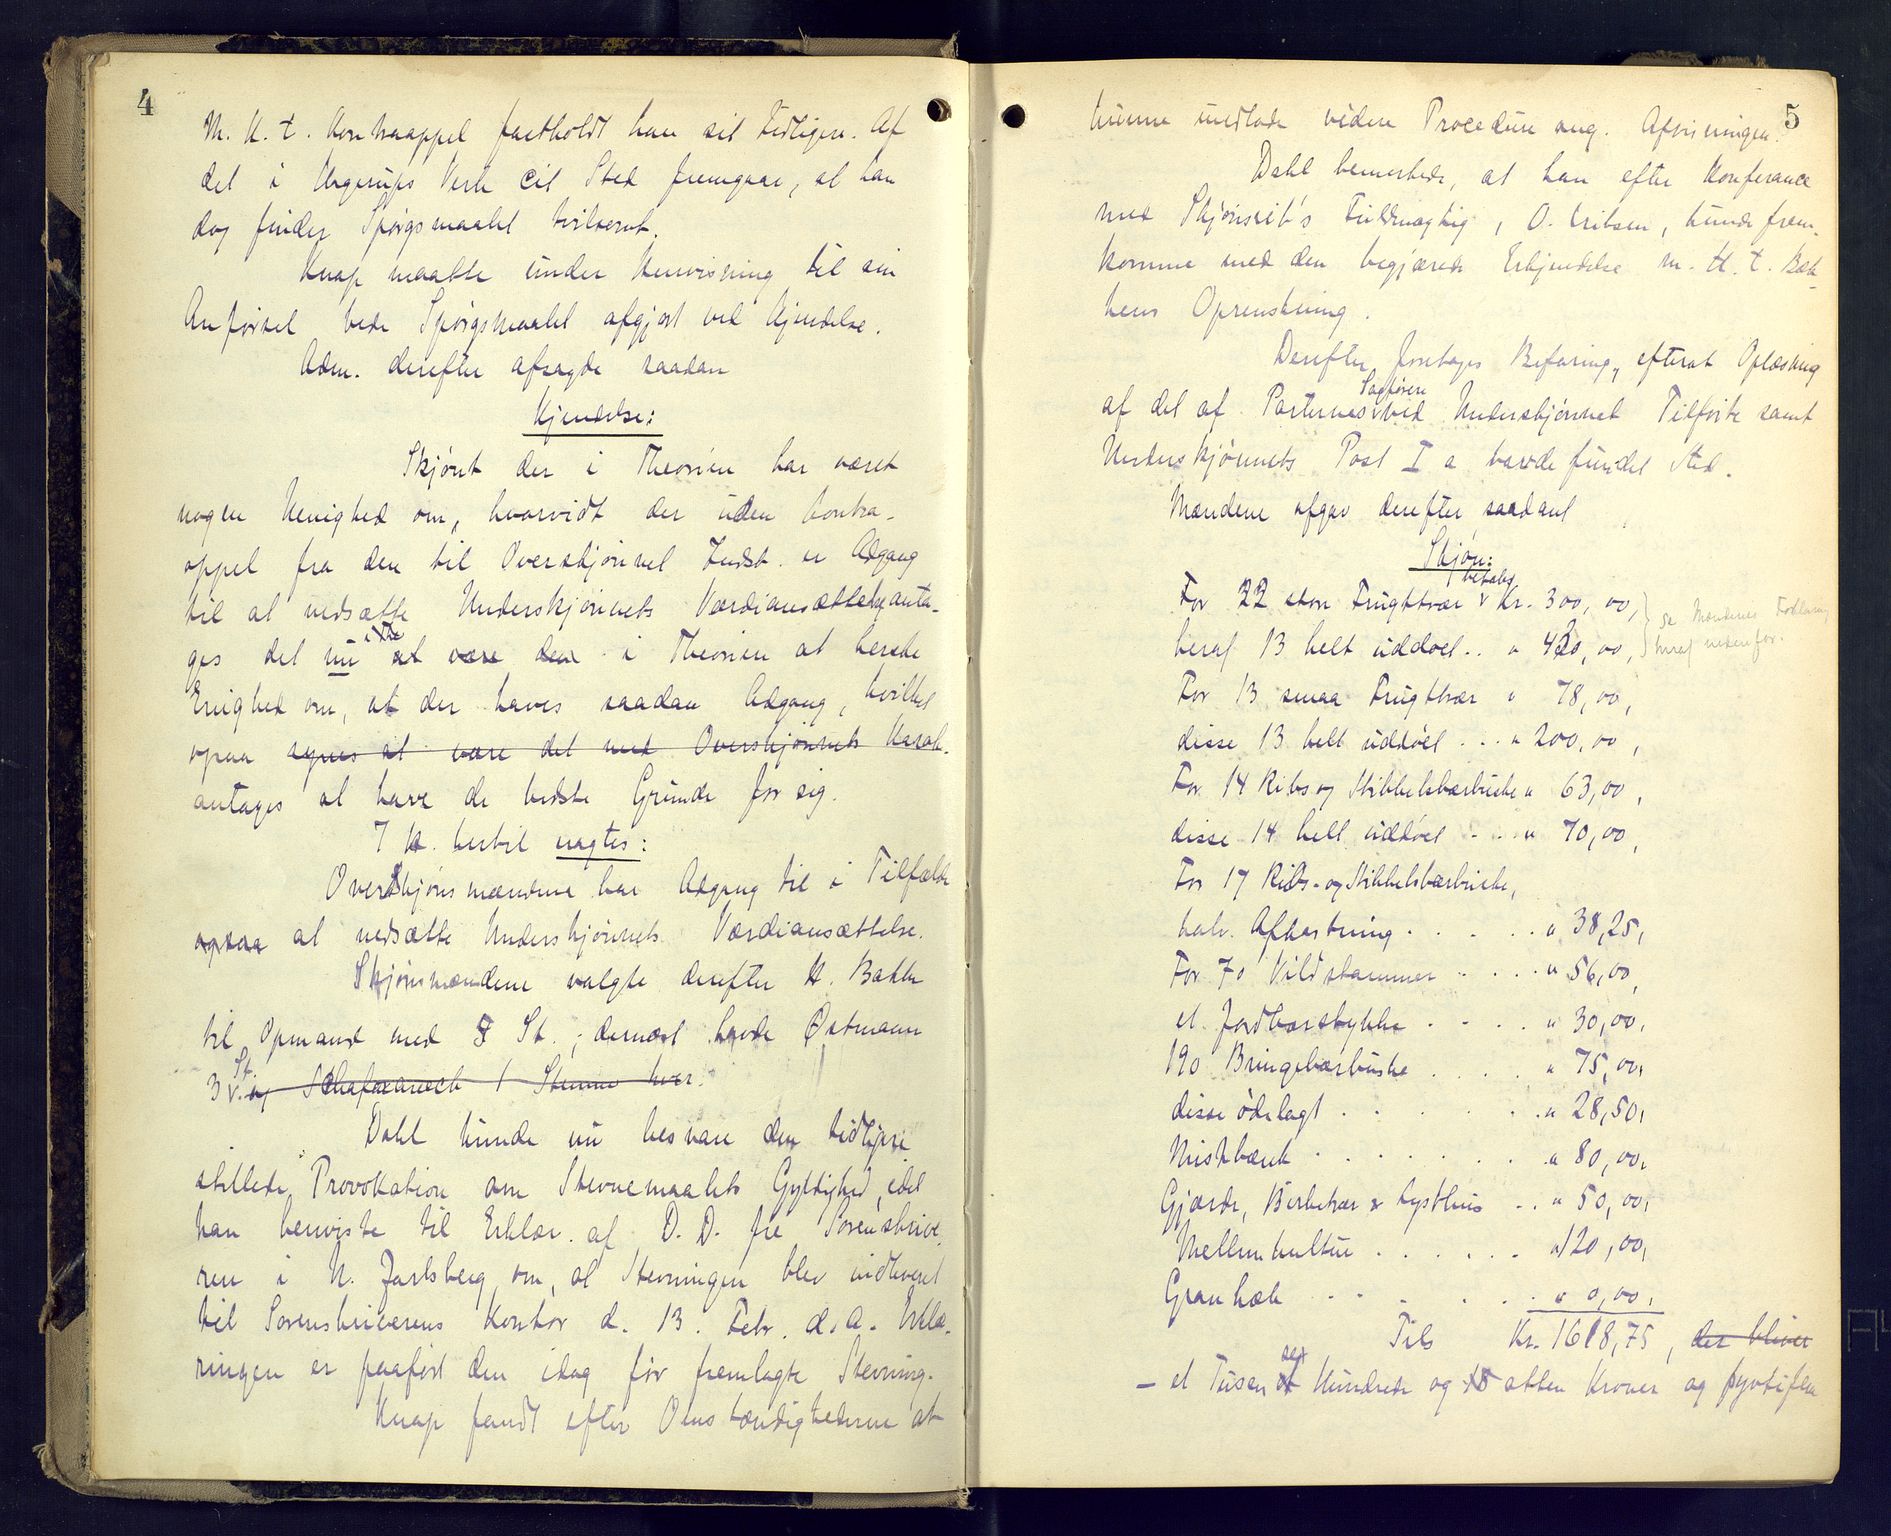 4
M. H. t. Kontraappel fastholdt han sit Tidligere. Af
det i Hagerups Verk cit Sted fremgaar, at han
dog finder Spørgsmaalet tvilsomt.
Knap maatte under Henvisning til sin
Anførsel bede Spørgsmaalet afgjort ved Kjendelse.
Adm. derefter afsagde saadan
Kjendelse:
Skjønt der i Theorien har været
nogen Uenighed om, hvorvidt der uden Kontra-
appel fra den til Overskjønnet Indst. er Adgang
til at nedsætte Underskjønnets Værdiansættelse anta-
ges det nu at være den i Theorien at herske
Enighed om, at der haves saadan Adgang, hvilket
ogsaa synes at være det med Overskjønnets Karak-
antages at have de bedste Grunde for sig.
I H. hertil vagtes:
Overskjønsmændene har Adgang til i Tilfælde
ogsaa at nedsætte Underskjønnets Værdiansættelse.
Skjønsmændene valgte derefter H. Bakke
til Opmand med 5 St.; dernæst havde Østmann
3 St. og 1 Stemme hver.
Dahl kunde nu besvare den tidligere
stillede Provokation om Stevnemaalets Gyldighed, idet
han henviste til Erklær. af D. D. fra Sorenskrive
ren i N. Jarlsberg om, at Stevningen blev indleveret
til Sorenskriverens Kontor d. 13. Febr. d. A. Erklæ-
ringen er paaført den idag før fremlagte Stevning.
Knap fandt efter Omstændighederne at
5
kunne undlade videre Procedure ang. Afvisningen.
Dahl bemerkede, at han efter Konferance
med Fuldmægtig, O. kunde frem-
komme med den begjærede Erkjendelse m. H. t. Bæk-
kens Oprenskning.
Derefter foretoges Befaring, efterat Oplæsning
af det af Parternes Sagførere ved Underskjønnet Tilførte samt
Underskjønnets Post I a havde fundet Sted.
Mændene afgav derefter saadant
Skjøn:
For 22 store Frugttrær betales Kr. 300,00,
heraf 13 helt uddøet .. " 420,00, } se Mændenes Forklaring
heraf nedenfor.
For 13 smaa Frugttrær " 78,00,
disse 13 helt uddøet ... " 200,00,
For 14 Ribs og Stikkelsbærbuske " 63,00,
disse 14 helt uddøet ... " 70,00,
For 17 Ribs- og Stikkelsbærbuske,
halv. Afkastning ..... " 38,25,
For 70 Vildstammer .... " 56,00,
et Jordbærstykke .... " 30,00,
190 Bringebærbuske .... " 75,00,
disse ødelagt ...... " 28,50,
Mistbænk ....... " 80,00,
Gjærde, Birketrær & Lysthus .. " 50,00,
Mellemkultur ...... " 120,00,
Granhæk ...... " 0,00,
Tils Kr. 1618,75, der bliver
– et Tusen sex Hundrede og atten Kroner og syvtifem